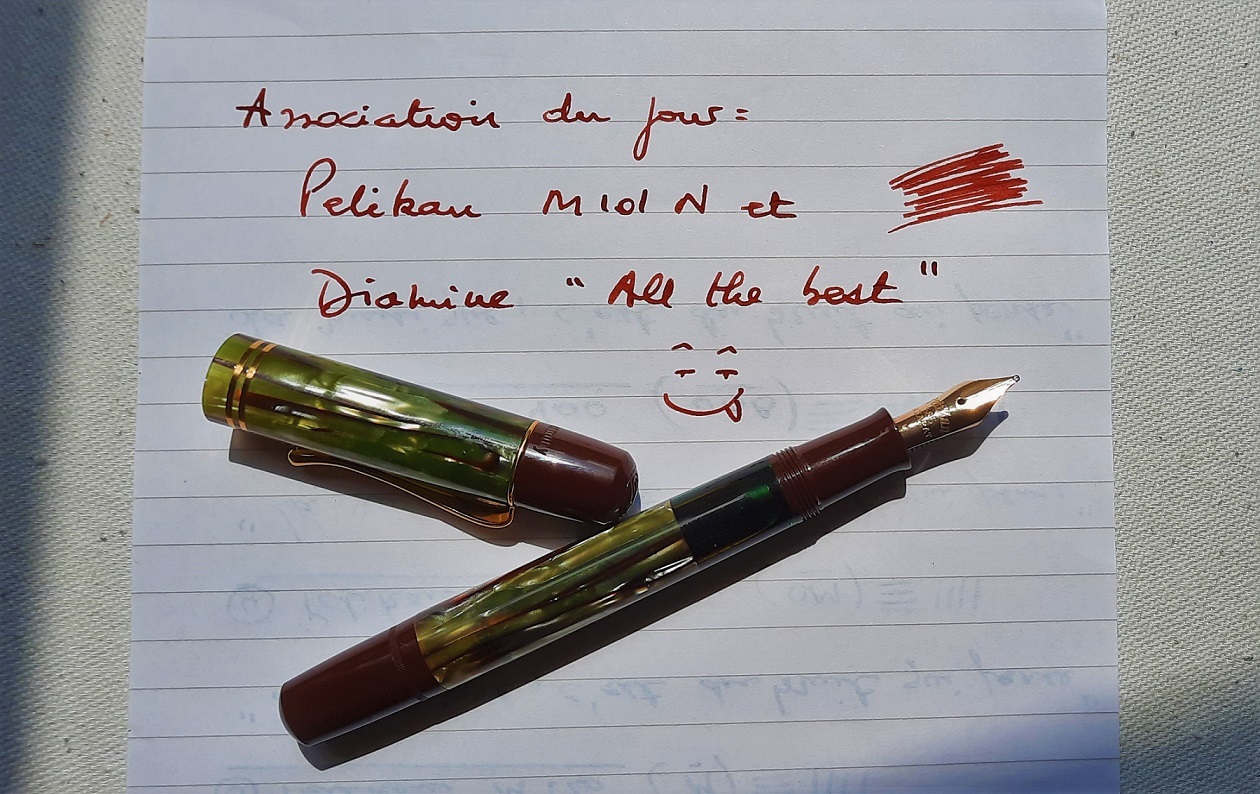 Association du jour =
Pelikan M101N et
Diamine "All the best"